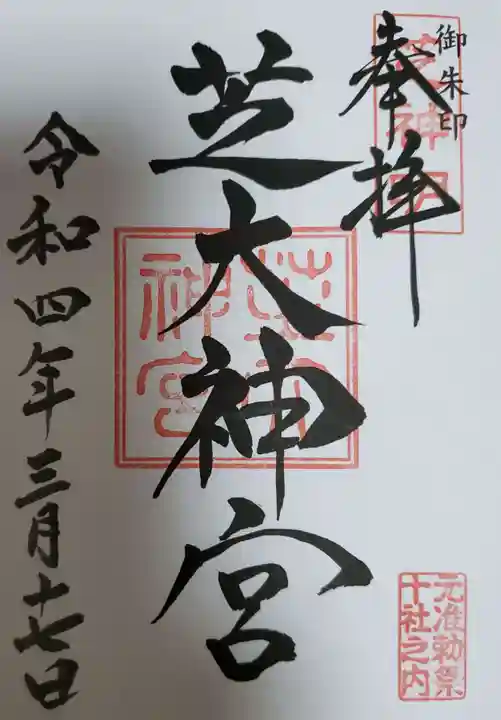 御朱印
奉拝
芝神明
芝大神宮
芝大神宮
令和四年三月十七日
元准勅祭
十社之内